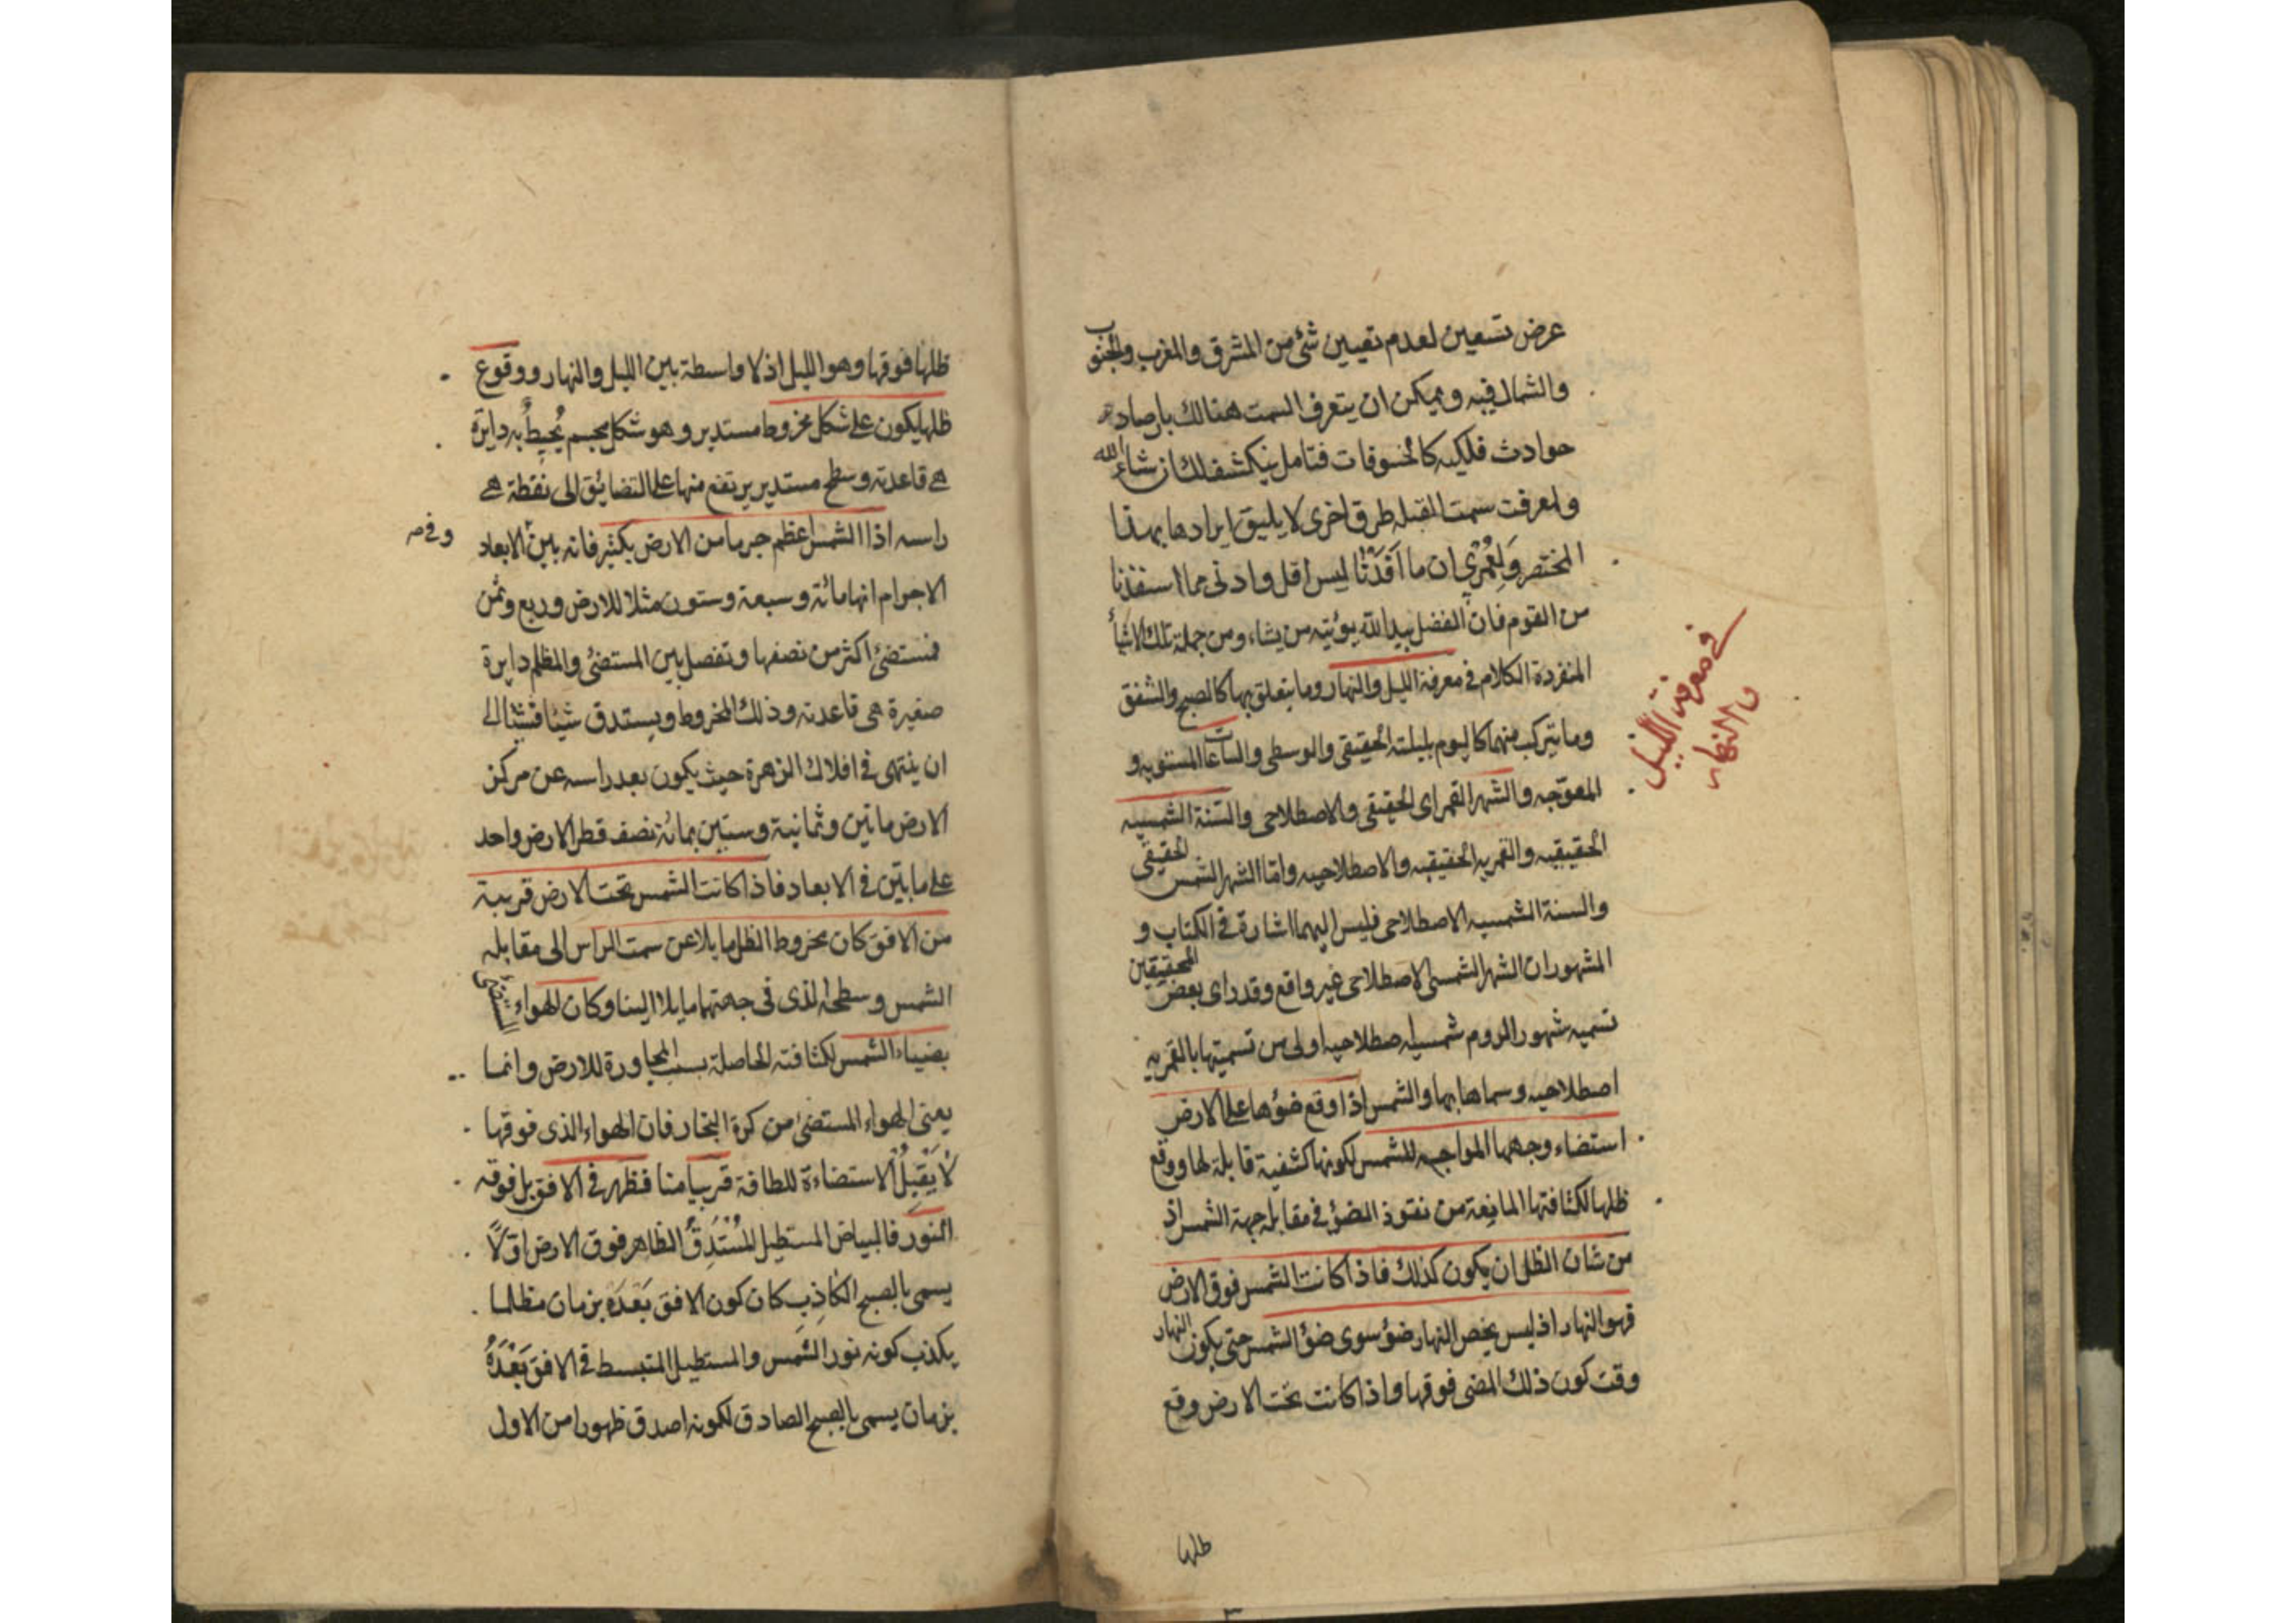 عرض تسعين لعدم تعيين شئ من المشرق والمغرب والجنوب
والشمال فيه ويمكن ان يتعرف السمت هنالك بارصاد
حوادث فلكيه كالخسوفات فتامل ينكشف لك ان شاء الله
ولمعرفت سمت القبله طرق اخرى لا يليق ايرادها بهذا
المختصر ولعمري ان ما افدنا ليس اقل وادنى مما استفدنا
من القوم فان الفضل بيد الله يؤتيه من يشاء ومن جملة تلك الاشياء
المنفردة الكلام في معرفة الليل والنهار وما يتعلق بهما كالصبح والشفق
وما يتركب منهما كاليوم بليلته الحقيقى والوسطى والساعات المستويه و
المعوّجه والشهر القمرى الحقيقى والاصطلاحى والسّنة الشمسيه
الحقيقيه والقمريه الحقيقيه والاصطلاحيه وامّا الشهر الشمسى الحقيقى
والسنة الشمسيه الاصطلاحى فليس اليهما اشارة فى الكتاب و
المشهور ان الشهر الشمسى الاصطلاحى غير واقع وقد راى بعض المحققين
تسميه شهور الروم شمسيه اصطلاحيه اولى من تسميتها بالقمريه
اصطلاحيه وسماها بها والشمس اذا وقع ضوؤها على الارض
استضاء وجهها المواجه للشمس لكونها كثيفة قابلة لها ووقع
ظلها لكثافتها المانعة من نفوذ الضوء فى مقابله جهة الشمس اذ
من شان الظل ان يكون كذلك فاذا كانت الشمس فوق الارض
فهو النهار اذ ليس يخص النهار ضوء سوى ضوء الشمس حتى يكون النهار
وقت كون ذلك المضى فوقها واذا كانت تحت الارض وقع
ظلها
فى معرفة الليل
والنهار
ظلها فوقها وهو الليل اذ لا واسطة بين الليل والنهار ووقوع
ظلها يكون على شكل مخروط مستدير وهو شكل مجسم يُحيطُ به دايرة
هى قاعدته وسطح مستدير يرتفع منها على التضايق الى نقطة هى
راسه اذا الشمس اعظم جرما من الارض بكثير فانه بين الابعاد
الاجرام انها مائة وسبعة وستون مثلا للارض وربع وثمن
فتستضئ اكثر من نصفها وتفصل بين المستضئ والمظلم دايرة
صغيرة هى قاعدته وذلك المخروط ويستدق شيئا فشيئا الى
ان ينتهى فى افلاك الزهرة حيث يكون بعد راسه عن مركز
الارض ماتين وثمانية وستين بمائة نصف قطر الارض واحد
على ما بيّن فى الابعاد فاذا كانت الشمس تحت الارض قريبة
من الافق كان مخروط الظل مايلا عن سمت الراس الى مقابله
الشمس وسطحه الذى فى جهتها مايلا الينا وكان الهواء المستضئ
بضياء الشمس لكثافته الحاصلة بسبب المجاورة للارض وانما
يعنى الهواء المستضئ من كرة البخار فان الهواء الذى فوقها
لا يَقْبِلُ الاستضاءة للطافة قريبا منا فظهر فى الافق بل فوقه
النور فالبياض المستطيل المُسْتَدِقُّ الظاهر فوق الارض اوّلًا
يسمى بالصبح الكاذِب كان كون الافق بَعْدَه بزمان مظلما
يكذب كونه نور الشمس والمستطيل المنبسط فى الافق بَعْدَهُ
بزمان يسمى بالصبح الصادق لكونه اصدق ظهورا من الاول